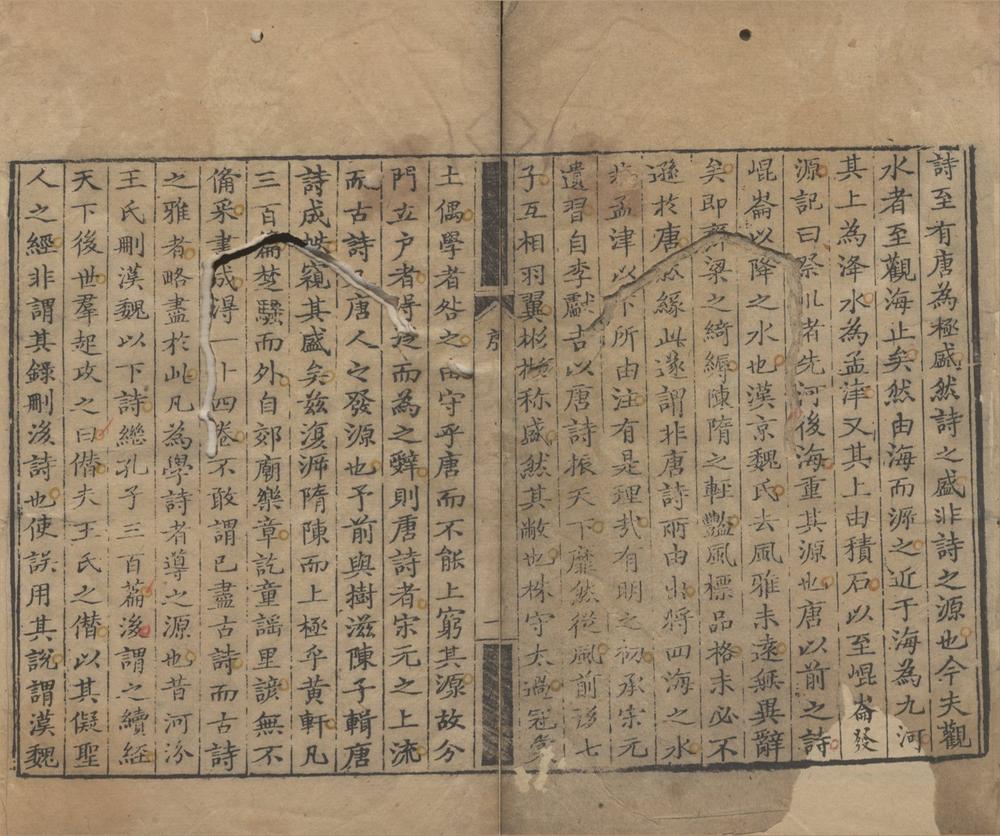 詩至有唐為極盛然詩之盛非詩之源也今夫觀
水者至觀海止矣然由海而泝之近于海為九河
其上為洚水為孟津又其上由積石以至崐崙發
源記曰祭川者先河後海重其源也唐以前之詩
崐崙以降之水也漢京魏氏去風雅未遠無異辭
矣即齊梁之綺縟陳隋之輕豔風標品格未必不
遜於唐然緣此遂謂非唐詩所由出將四海之水
非孟津以下所由注有是理哉有明之初承宋元
遺習自李獻吉以唐詩振天下靡然從風前後七
子互相羽翼彬彬称盛然其敝也株守太過冠裳
土偶學者咎之由守乎唐而不能上窮其源故分
門立户者得從而為之辭則唐詩者宋元之上流
而古詩又唐人之發源也予前與樹滋陳子輯唐
詩成帙窺其盛矣兹復泝隋陳而上極乎黄軒凡
三百篇楚騷而外自郊廟樂章訖童謡里諺無不
備采書成得一十四卷不敢謂已盡古詩而古詩
之雅者略盡於此凡為學詩者導之源也昔河汾
王氏刪漢魏以下詩繼孔子三百篇後謂之續經
天下後世羣起攻之曰僭夫王氏之僭以其儗聖
人之經非謂其錄刪後詩也使誤用其說謂漢魏
序
一